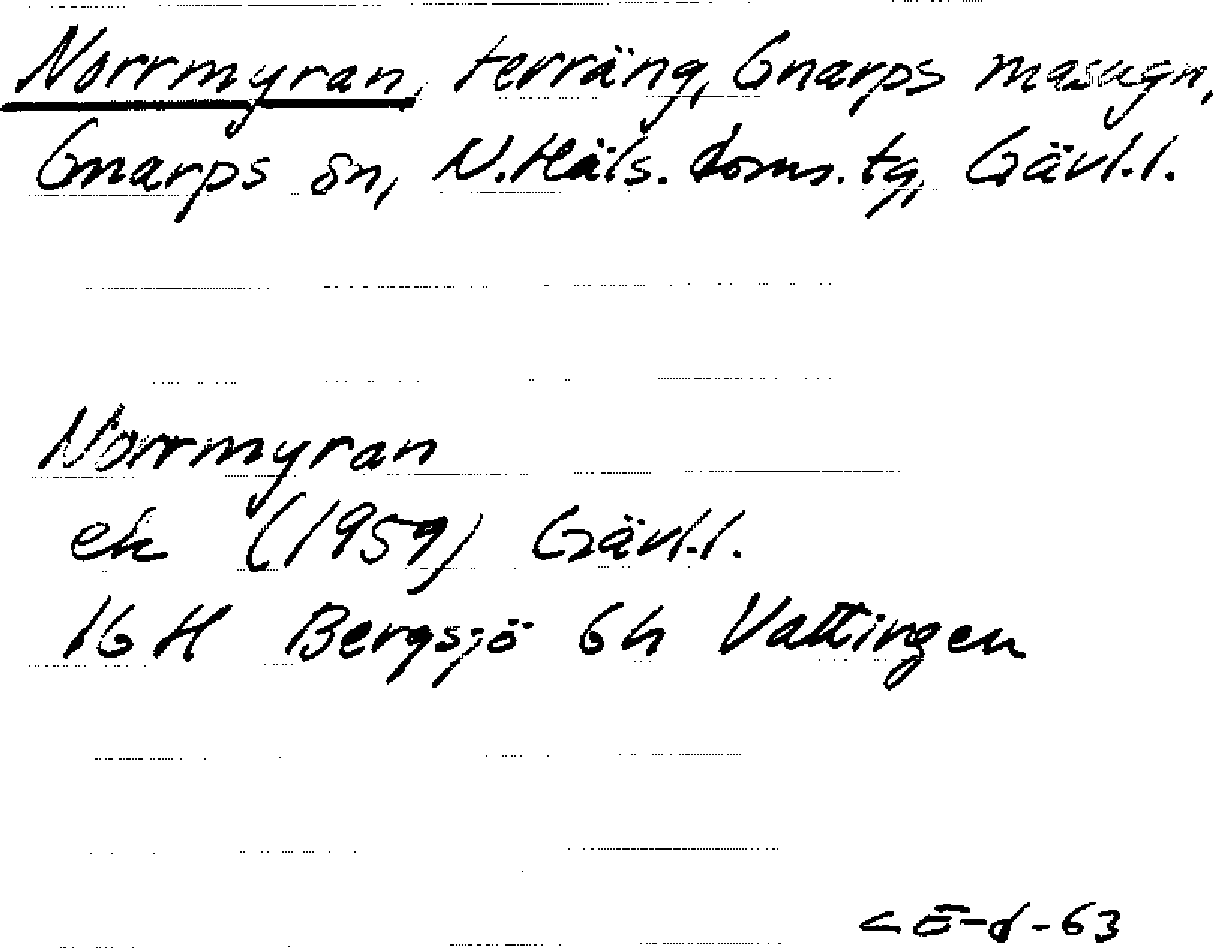 Norrmyran, terräng, Gnarps masugn,
Gnarps sn, N.Häls. doms.tg, Gävl.l.
Norrmyran
ek (1959) Gävl.l.
16 H Bergsjö 6h Vattingen